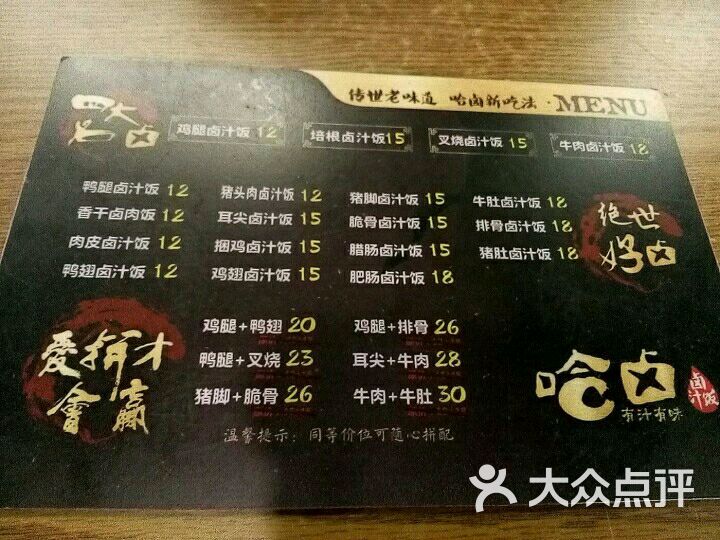 传世老味道 哈卤新吃法·MENU
四大名卤
鸡腿卤汁饭 12 培根卤汁饭 15 叉烧卤汁饭 15 牛肉卤汁饭 18
鸭腿卤汁饭 12 猪头肉卤汁饭 12 猪脚卤汁饭 15 牛肚卤汁饭 18
香干卤肉饭 12 耳尖卤汁饭 15 脆骨卤汁饭 15 排骨卤汁饭 18
肉皮卤汁饭 12 捆鸡卤汁饭 15 腊肠卤汁饭 15 猪肚卤汁饭 18
鸭翅卤汁饭 12 鸡翅卤汁饭 15 肥肠卤汁饭 18
绝世
好卤
爱拼才
會赢
鸡腿+鸭翅 20 鸡腿+排骨 26
鸭腿+叉烧 23 耳尖+牛肉 28
猪脚+脆骨 26 牛肉+牛肚 30
温馨提示：同等价位可随心拼配
哈卤
卤汁饭
有汁有味
大众点评